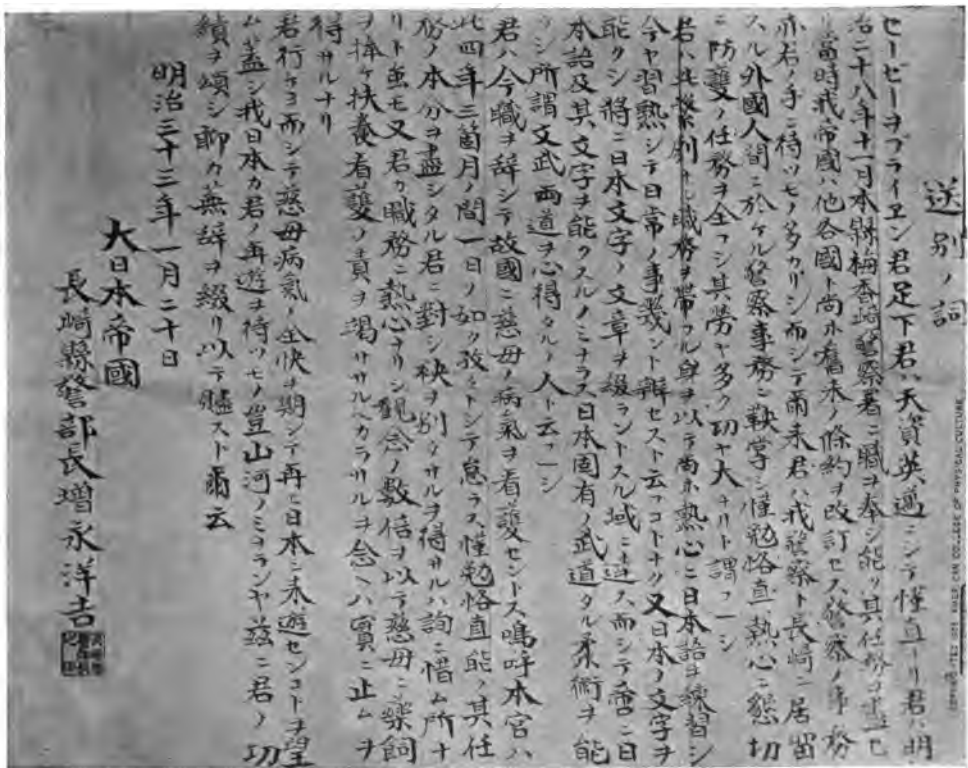 送別ノ詞
セーゼーヲブライヱン君足下君ハ天資英邁ニシテ慬直ナリ君ハ明
治二十八年十一月本縣梅香崎警察署ニ職ヲ奉シ能ク其任務ヲ盡セ
リ當時我帝國ハ他各國ト尚ホ舊来ノ條約ヲ改訂セス警察ノ事務
亦君ノ手ニ待ツモノ多カリシ而シテ爾来君ハ我警察ト長崎ニ居留
スル外國人間ニ於ケル警察事務ニ鞅掌シ慬勉恪直熱心ニ懇切
ニ防護ノ任務ヲ全フシ其勞ヤ多ク功ヤ大ナリト謂フヘシ
君ハ此繁劇ナル職務ヲ帯フル身ヲ以テ尚ホ熱心ニ日本語ヲ練習シ
今ヤ習熟シテ日常ノ事幾ント辯セスト云フコトナク又日本ノ文字ヲ
能クシ將ニ日本文字ノ文章ヲ綴ラントスル域ニ進ス而シテ啻ニ日
本語及其文字ヲ能クスルノミナラス日本固有ノ武道タル柔術ヲ能
クシ所謂文武両道ヲ心得タルノ人ト云フヘシ
君ハ今職ヲ辞シテ故國ニ慈母ノ病氣ヲ看護セントス嗚呼本官ハ
此四年三箇月ノ間一日ノ如ク孜々トシテ怠ラス慬勉恪直能ク其任
務ノ本分ヲ盡シタル君ニ對シ袂ヲ別タサルヲ得サルハ詢ニ惜ム所ナ
リト虽モ又君カ職務ニ熱心ナリシ観念ノ数倍ヲ以テ慈母ニ薬餌
ヲ捧ケ扶養看護ノ責ヲ竭サヽルヘカラサルヲ念ヘハ實ニ止ムヲ
得サルナリ
君行ケヨ而シテ慈母病氣ノ全快ヲ期シテ再ヒ日本ニ来遊センコトヲ望
ム蓋シ我日本カ君ノ再遊ヲ待ツモノ豈山河ノミナランヤ茲ニ君ノ功
績ヲ頌シ聊カ蕪辞ヲ綴リ以テ贐スト爾云
明治三十三年一月二十日
大日本帝國
長崎縣警部長増永洋吉